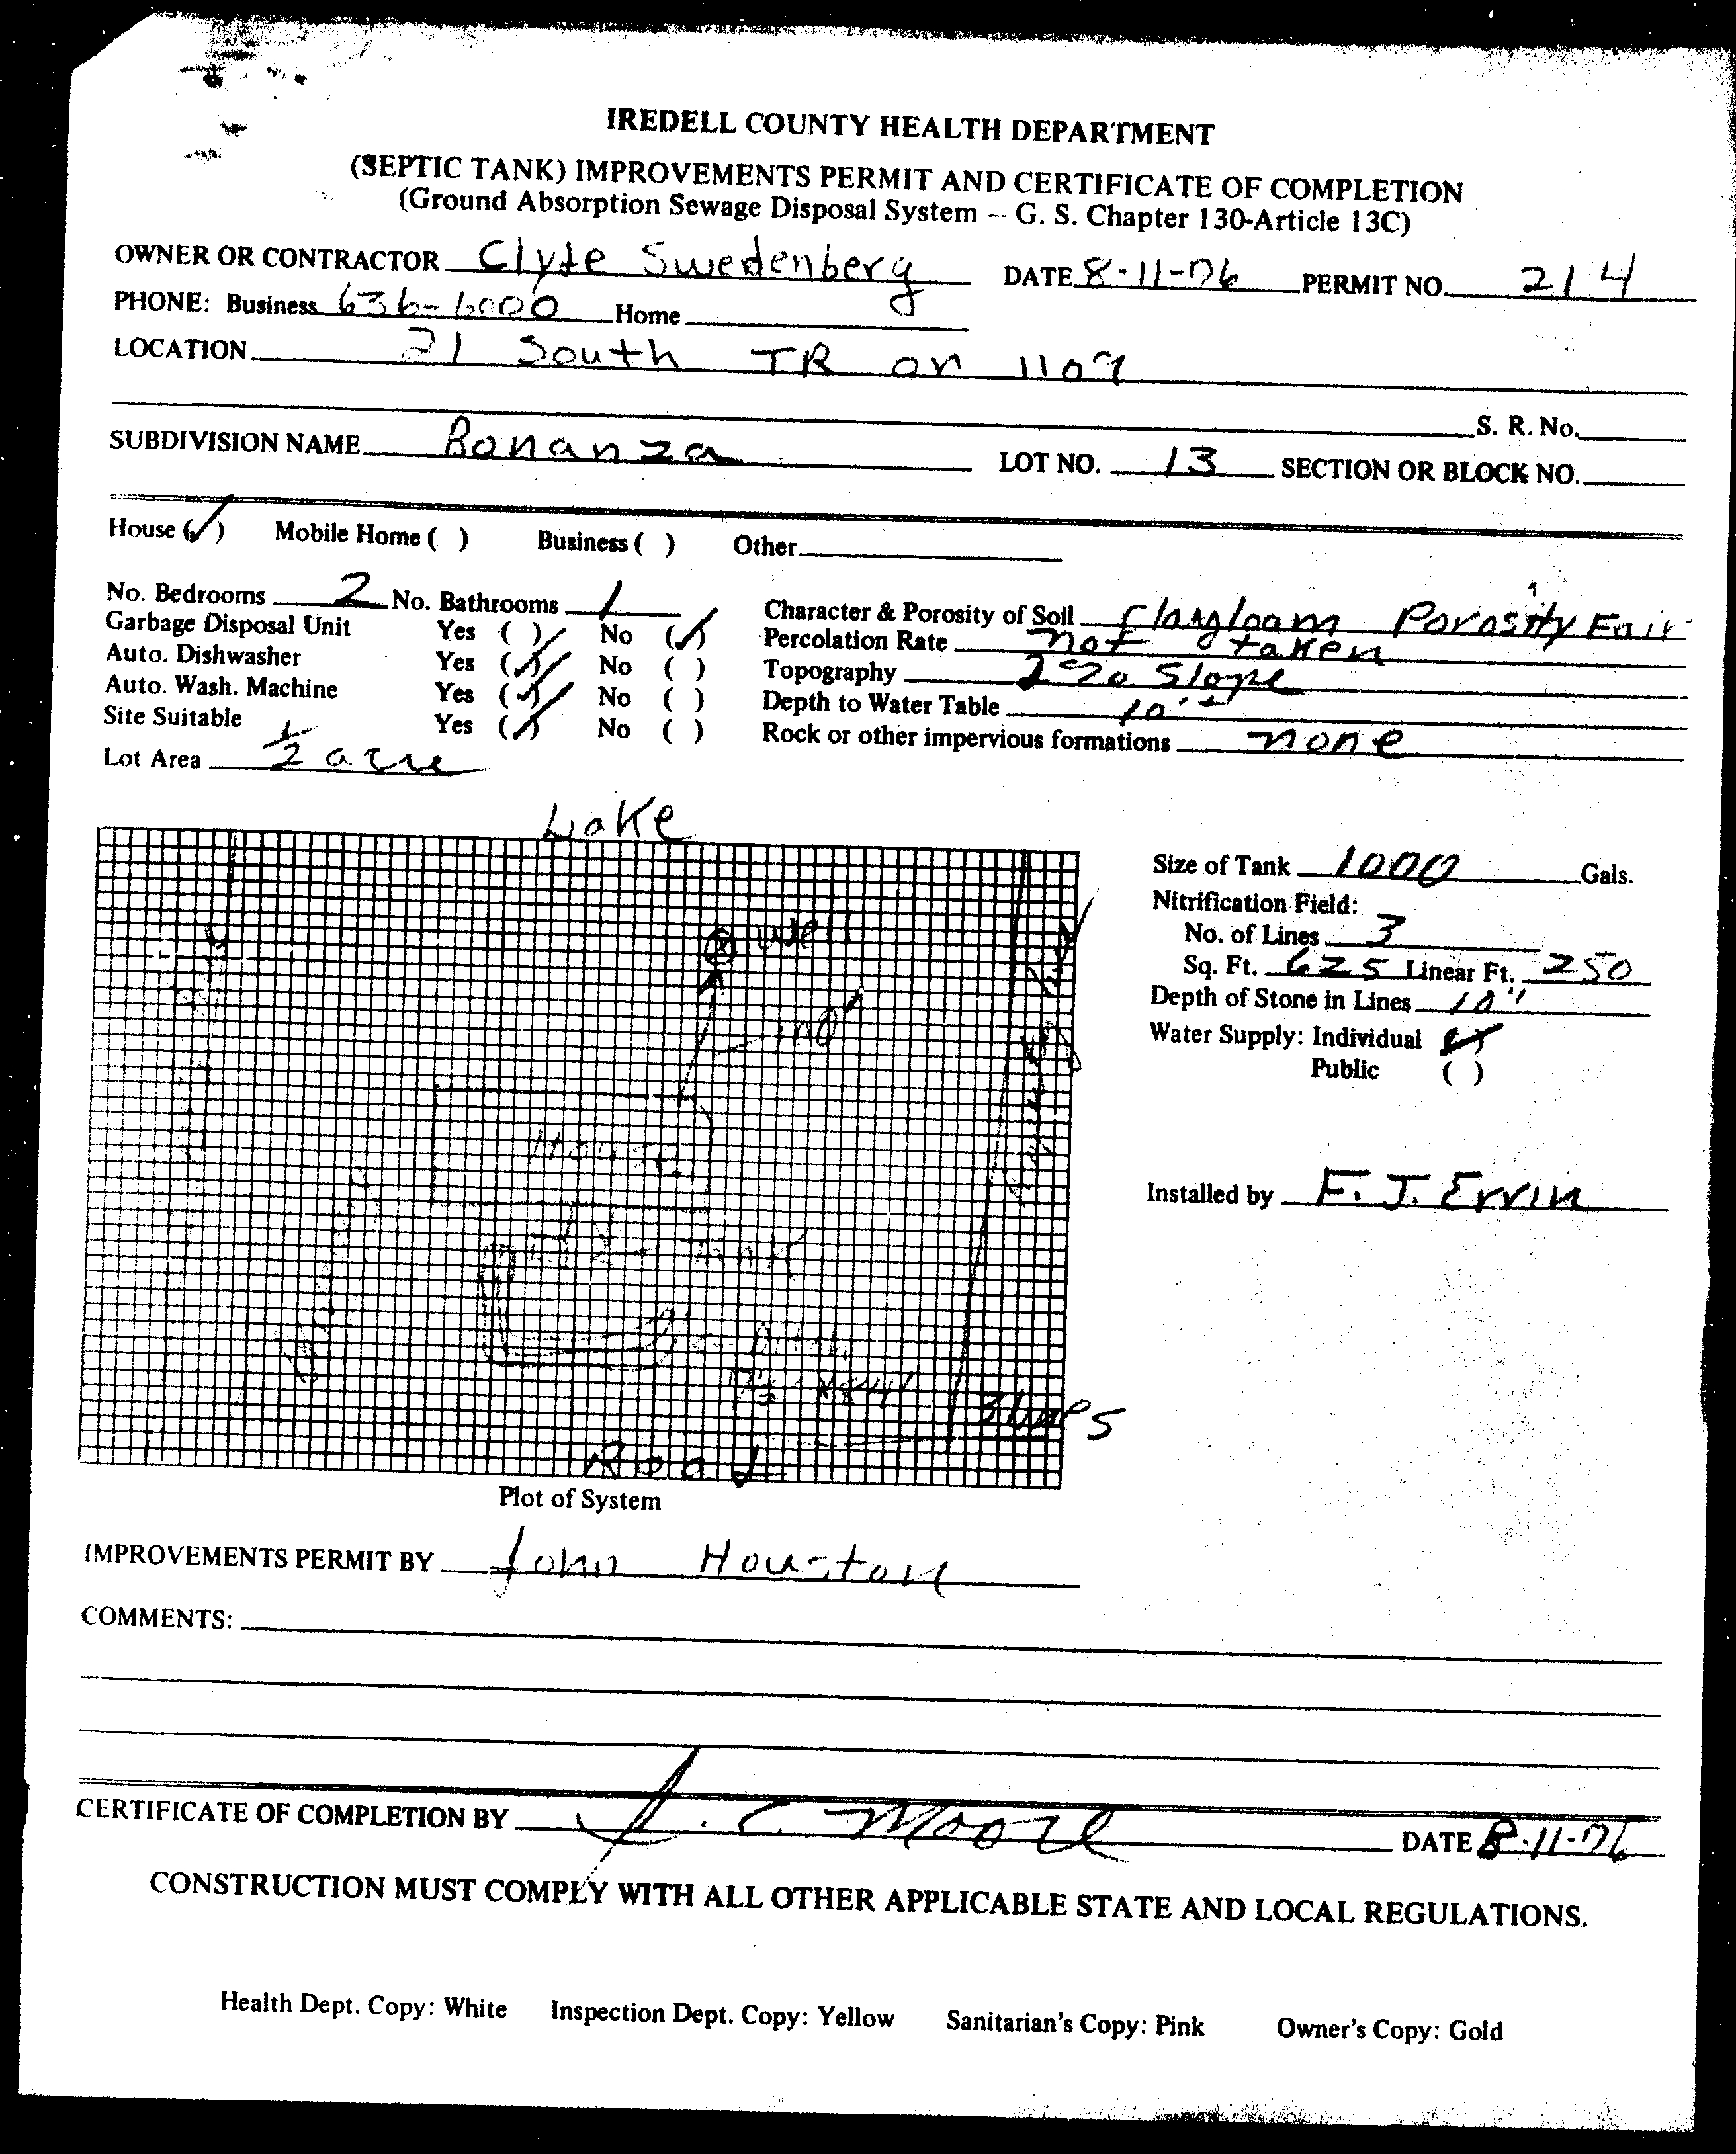 IREDELL COUNTY HEALTH DEPARTMENT
(SEPTIC TANK) IMPROVEMENTS PERMIT AND CERTIFICATE OF COMPLETION
(Ground Absorption Sewage Disposal System -- G. S. Chapter 130-Article 13C)
OWNER OR CONTRACTOR Clyde Swedenberg DATE 8-11-76 PERMIT NO. 214
PHONE: Business 636-6000 Home
LOCATION 21 South TR on 1109
S. R. No.
SUBDIVISION NAME Bonanza LOT NO. 13 SECTION OR BLOCK NO.
House (✓) Mobile Home ( ) Business ( ) Other
No. Bedrooms 2 No. Bathrooms 1
Garbage Disposal Unit Yes ( ) No (✓)
Auto. Dishwasher Yes (✓) No ( )
Auto. Wash. Machine Yes (✓) No ( )
Site Suitable Yes (✓) No ( )
Lot Area 1/2 acre
Character & Porosity of Soil Clayloam Porosity Fair
Percolation Rate not taken
Topography 2% Slope
Depth to Water Table 10'±
Rock or other impervious formations none
Lake
Well
100'
House
Tank
3 lines
Road
Plot of System
Size of Tank 1000 Gals.
Nitrification Field:
No. of Lines 3
Sq. Ft. 625 Linear Ft. 250
Depth of Stone in Lines 10"
Water Supply: Individual (✓)
Public ( )
Installed by F. J. Ervin
IMPROVEMENTS PERMIT BY John Houston
COMMENTS:
CERTIFICATE OF COMPLETION BY J. C. Moore DATE 8-11-76
CONSTRUCTION MUST COMPLY WITH ALL OTHER APPLICABLE STATE AND LOCAL REGULATIONS.
Health Dept. Copy: White Inspection Dept. Copy: Yellow Sanitarian's Copy: Pink Owner's Copy: Gold